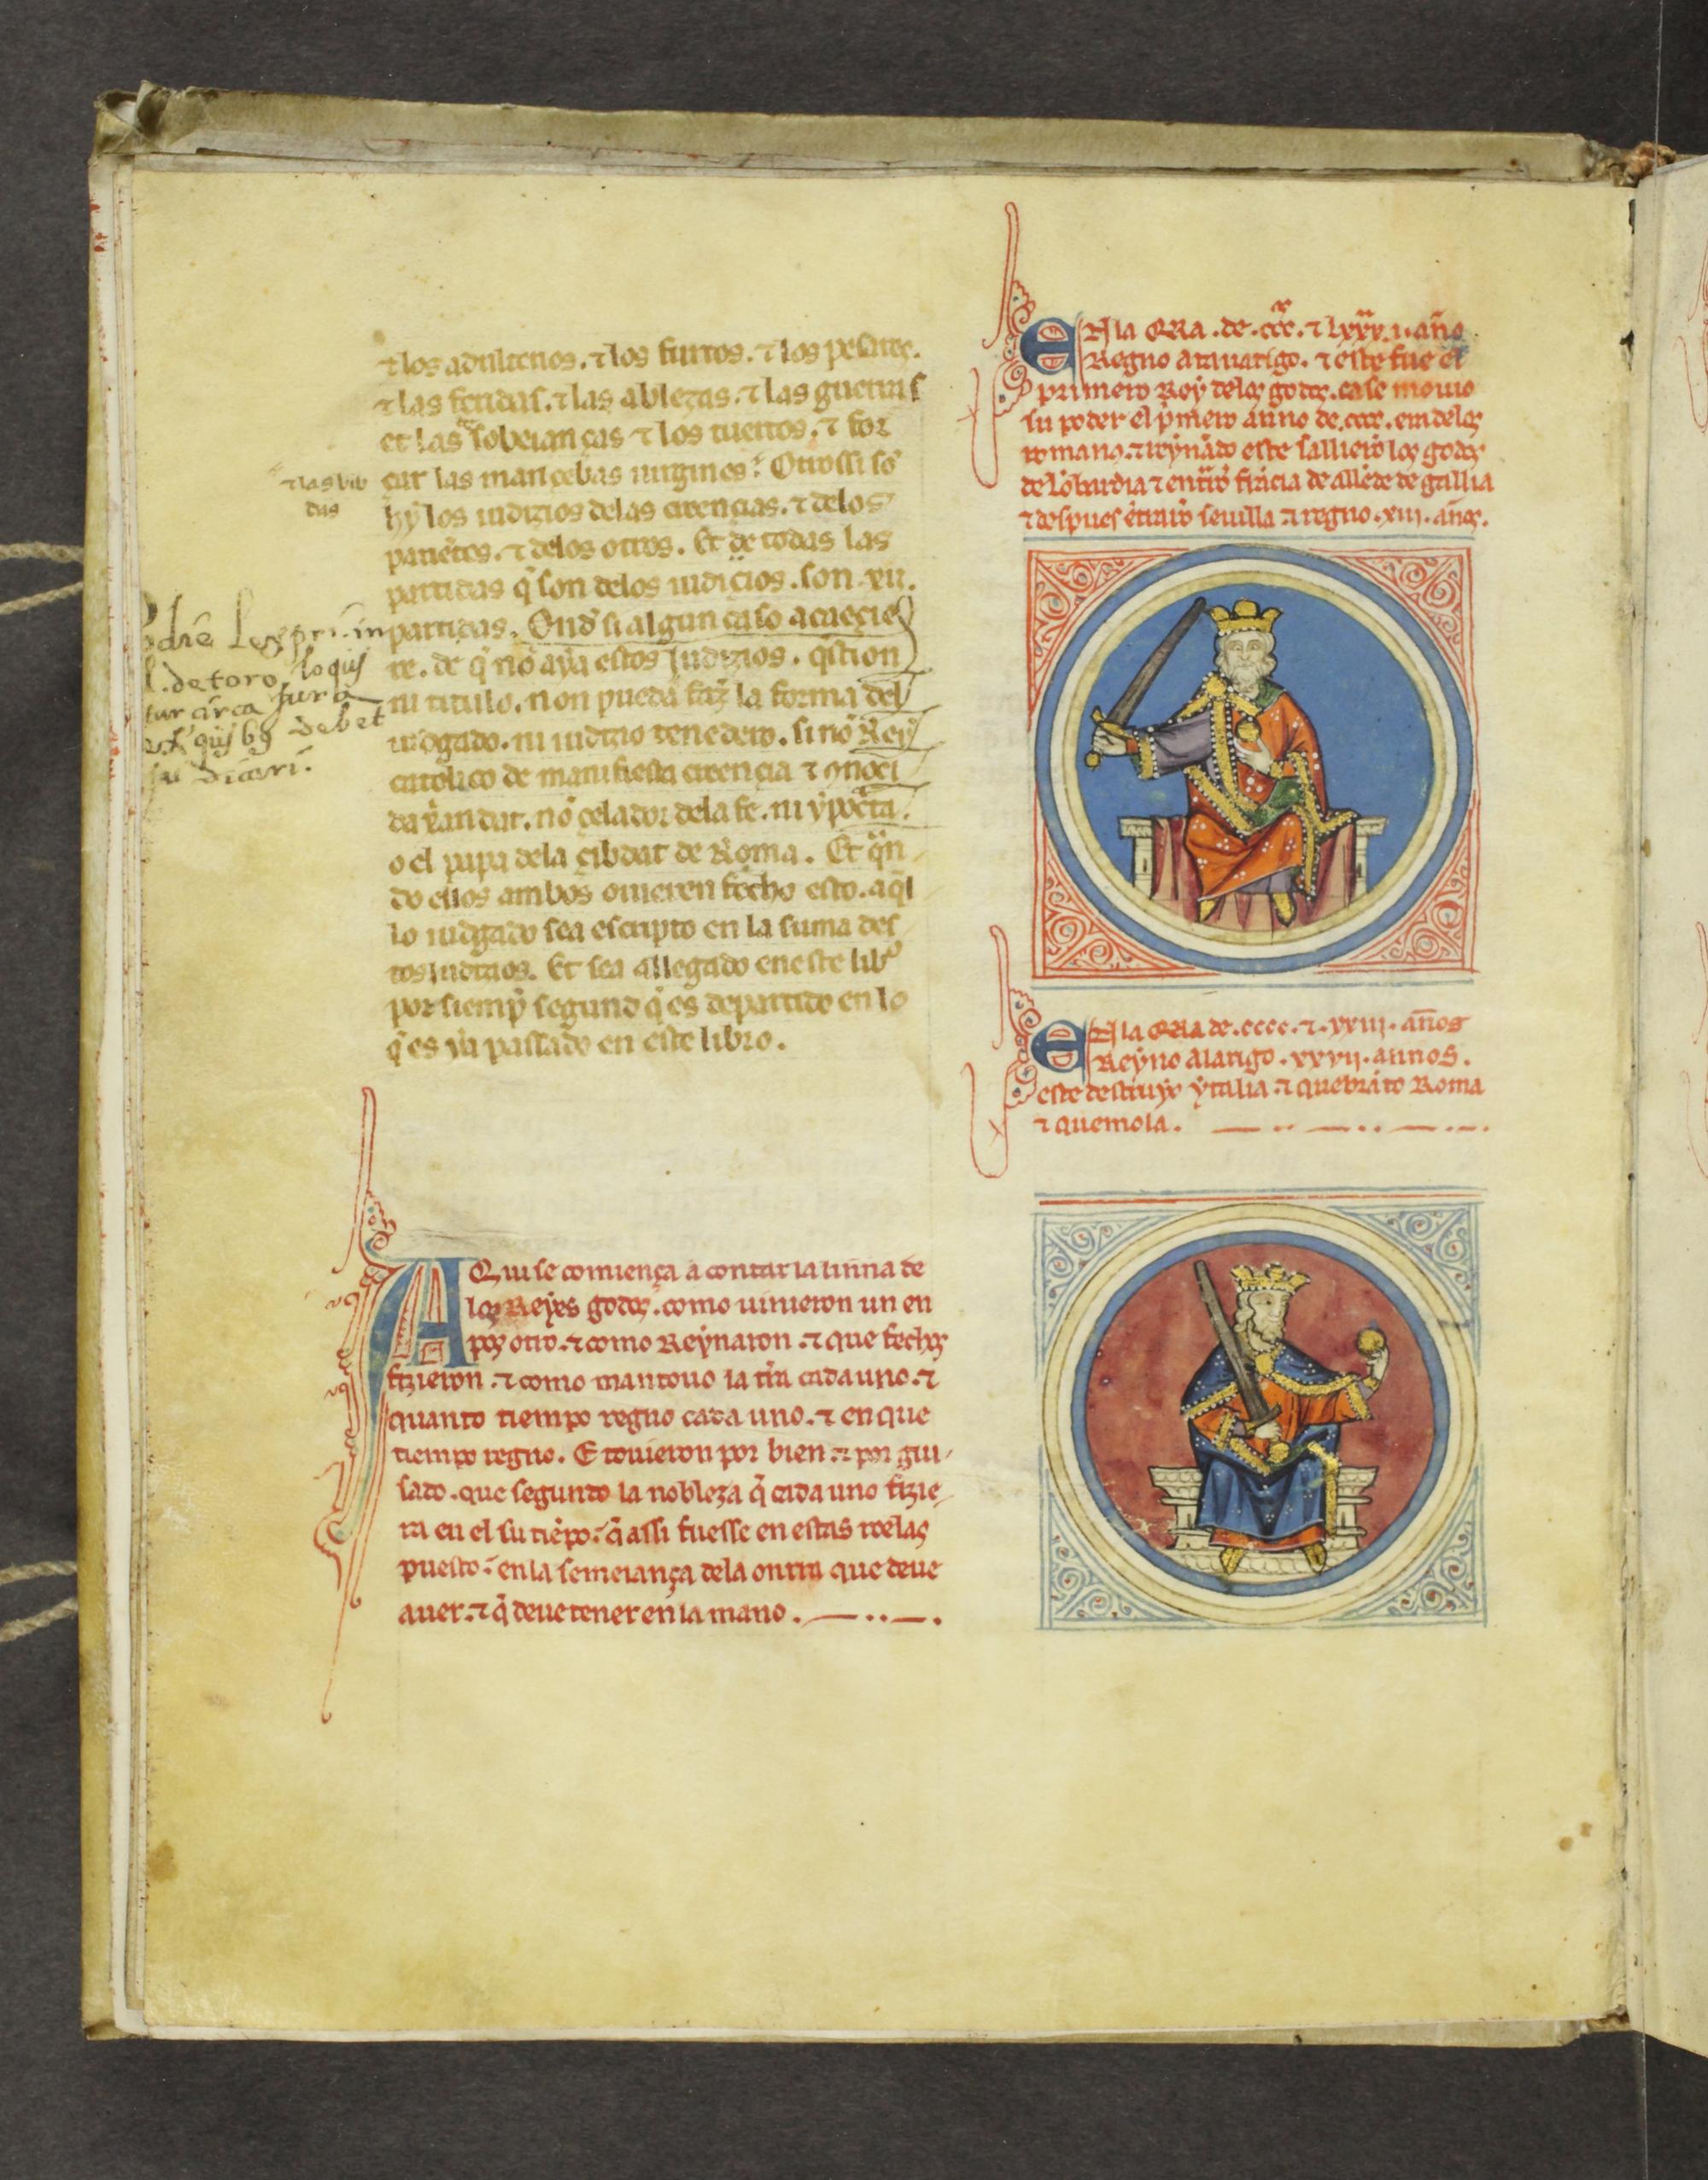 ⁊ los adulterios. ⁊ los furtos. ⁊ los
⁊ las feridas. ⁊ las ablezas. ⁊ las guerras
et las soberanças ⁊ los tuertos. ⁊ for
çar las mançebas uirgines: Otrossi sō
hẏ los iudizios delas creencias. ⁊ delos
pariētes. ⁊ delos otros. Et de todas las
partidas q̄ son delos iudiçios. son .xii.
partidas. Ond si algun caso acaeçie
re. de q̄ nō aẏa estos Judizios. q̄stion
ni titulo. non puedā faz̄ la forma del
iudgado. ni iudizio tenedero. si nō Reẏ
catolico de manifiesta creençia ⁊ ꝯnoçi
da ỹandat. nō çelador dela fe. ni ẏpocta.
o el papa dela çibdat de Roma. Et q̄n
do ellos ambos ouieren fecho esto. aq̄l
lo iudgado sea escripto en la suma des
tos Judizios. Et sea allegado eneste libº
por siemp̄ segund q̄ es departido en lo
q̄ es ẏa passado en este libro.
⁊ las bib
das
Leg pri. in
l. de toro. loquẏ
tur circa jura
quib9 debet
dicari.
AQui se comiença a contar la linna de
los Reẏes godos. como uinieron un en
pos otro. ⁊ como Reẏnaron. ⁊ que fechos
fizieron. ⁊ como mantouo la tr̄ra cada uno. ⁊
quanto tiempo regno cada uno. ⁊ en que
tiempo regno. E touieron por bien. ⁊ por gui
sado. que segundo la nobleza q̄ cada uno fizie
ra en el su tiēpo: q̄ assi fuesse en estas roelas
puesto: en la semeiança dela onrra que deue
auer. ⁊ q̄ deue tener en la mano.
EN la ERA .de .ccc. ⁊ lxxx.v. año
Regno atanarigo. ⁊ este fue el
primero Reẏ delos godos. ca se mouio
su poder el p̄mero anno de .cccc. em delos
romanos. ⁊ reẏnādo este sallierō los godos
de lōbardia ⁊ entrarō frācia de allēde de gallia
⁊ despues ētrarō seuilla ⁊ regno .xiii. ans.
EN la ERA de .cccc. ⁊ .xxiii. años
Reẏno alarigo .xxvii. annos.
este destruẏo ẏtalia. ⁊ quebrāto Roma
⁊ quemola.